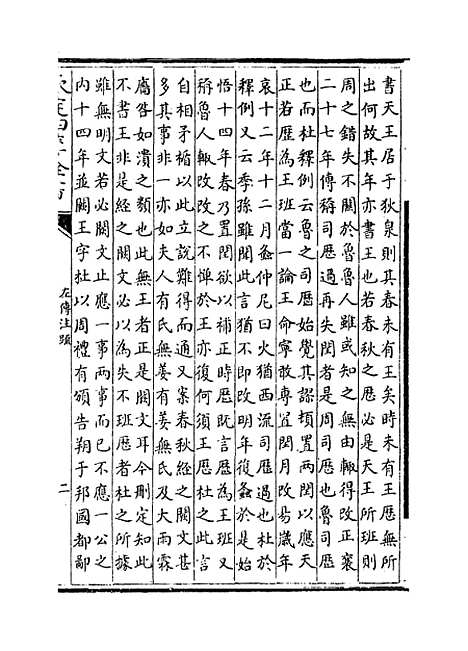 書天王居于狄泉則其春未有王矣時未有王歷無所
出何故其年亦書王也若春秋之歷必是天王所班則
周之錯失不關於魯魯人雖或知之無由輒得改正襄
二十七年傳稱司歷過再失閏者是周司歷也魯司歷
也而杜釋例云魯之司歷始覺其謬頓置兩閏以應天
正若歷為王班當一論王命寧敢專置閏月改易歲年
哀十二年十二月螽仲尼曰火猶西流司歷過也杜於
釋例又云季孫雖聞此言猶不即改明年復螽於是始
悟十四年春乃置閏欲以補正時歷既言歷為王班又
稱魯人輒改改之不憚於王亦復何須王歷杜之此言
自相矛楯以此立說難得而通又案春秋經之闕文甚
多其事非一亦如夫人有氏無姜有姜無氏及大雨霖
廧咎如潰之類也此無王者正是闕文耳今刪定知此
不書王非是經之闕文必以為失不班歷者杜之所據
雖無明文若必闕文止應一事兩事而已不應一公之
内十四年並闕王字杜以周禮有頒告朔于邦國都鄙
欽定四庫全書
左傳注疏
二